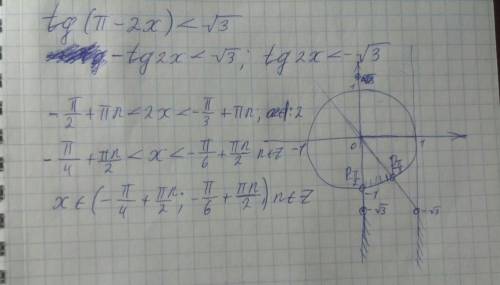 tg(π-2x)<√3
-tg2x<√3; tg2x<-√3
-π/2+πn<2x<-π/3+πn, :2
-π/4+πn/2<x<-π/6+πn/2 n∈Z
x∈(-π/4+πn/2; -π/6+πn/2) n∈Z
1
-1
0
1
-1
-√3
-√3